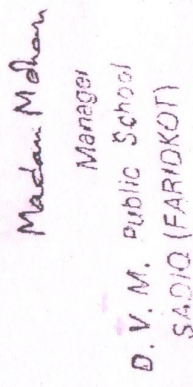 Madan Mohan
Manager
D. V. M. Public School
SADIQ (FARIDKOT)